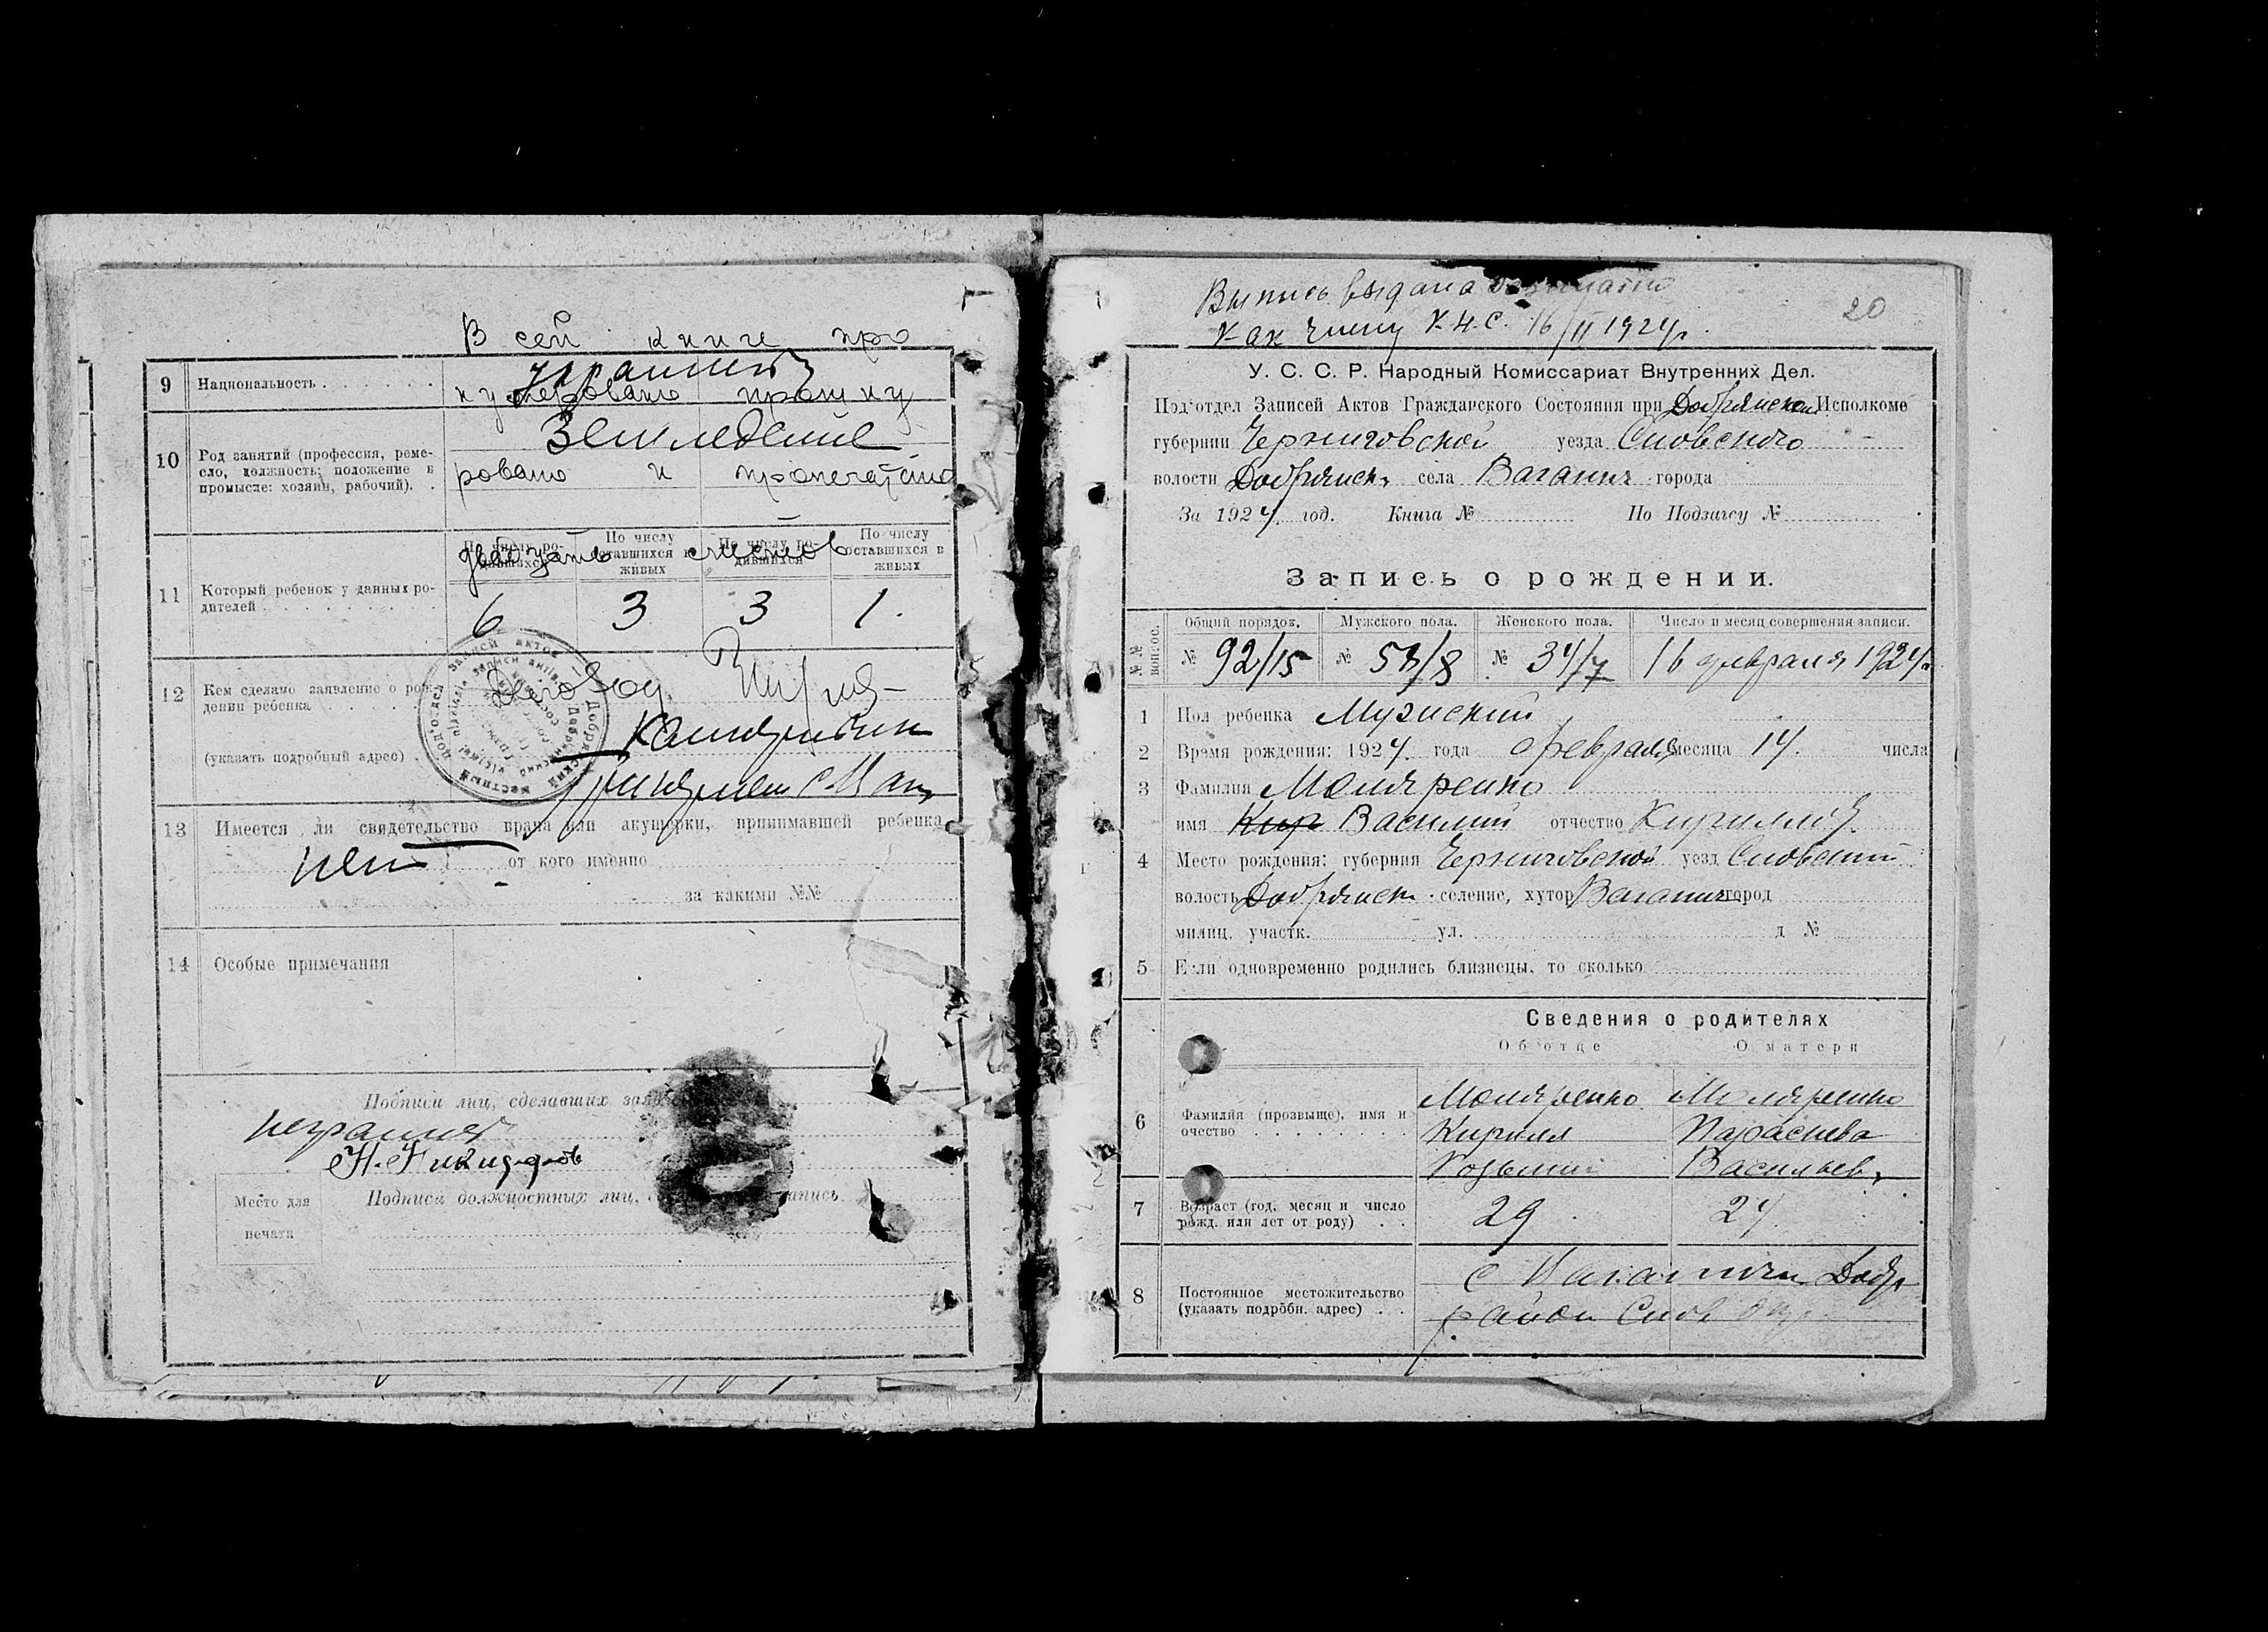 В сей книге про
9 Национальность . . . . . . украинец
нумеровано прошну
10 Род занятий (профессия, реме-
сло, должность; положение в
промысле: хозяин, рабочий). .
Земледелие
ровано и пропечатано
двадцать листов
11 Который ребенок у данных ро-
дителей . . . . . . . . .
По числу ро-
дившихся
По числу
оставшихся в
живых
По числу ро-
дившихся
По числу
оставшихся в
живых
6 3 3 1.
12 Кем сделано заявление о рож-
дении ребенка . . . . .
(указать подробный адрес) .
13 Имеется ли свидетельство врача или акушорки, принимавшей ребенка
нет от кого именно
за какими №№
14 Особые примечания
Подписи лиц, сделавших
неграмот
Н. Никифоров
Подписи должностных лиц,
Место для
печати
Выпись выдана бесплатно
как члену К.Н.С. 16/II 1924г.
20
У. С. С. Р. Народный Комиссариат Внутренних Дел.
Под'отдел Записей Актов Гражданского Состояния при Добрянском Исполкоме
губернии Черниговской уезда Сновского
волости Добрянск. села Ваганич города
За 1924 год. Книга № По Подзагсу №
Запись о рождении.
№№ Общий порядок. Мужского пола. Женского пола. Число и месяц совершения записи.
№ 92/15 № 58/8 № 34/7 16 февраля 1924г.
1 Пол ребенка Мужский
2 Время рождения: 1924. года февраля месяца 14. числа
3 Фамилия Моляренко
имя Кир Василий отчество Кириллов.
4 Место рождения: губерния Черниговской уезд Сновский
волость Добрянск селение, хутор Ваганич город
милиц. участк. ул. д №
5 Если одновременно родились близнецы, то сколько
Сведения о родителях
Об отце О матери
6 Фамилия (прозвище), имя и
очество . . . . . . . .
Моляренко Моляренко
Кирилл Параскева
Козьмин Васильев.
7 Возраст (год, месяц и число
рожд. или лет от роду) . .
29 24
8 Постоянное местожительство
(указать подробн. адрес) . .
с Ваганичи Добр
район Снов